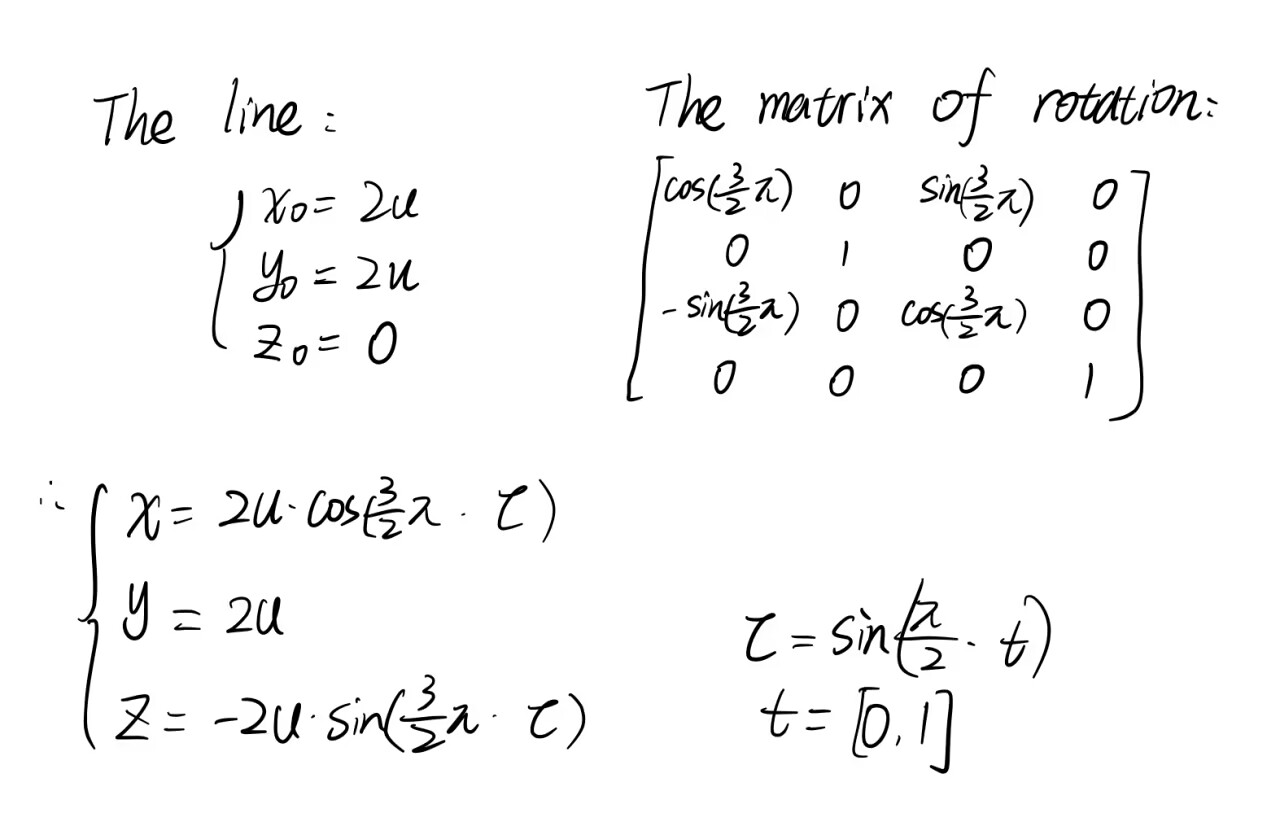 The line:
x₀ = 2u
y₀ = 2u
z₀ = 0
The matrix of rotation:
cos(3/2 π) 0 sin(3/2 π) 0
0 1 0 0
-sin(3/2 π) 0 cos(3/2 π) 0
0 0 0 1
∴ x = 2u · cos(3/2 π · τ)
y = 2u
z = -2u · sin(3/2 π · τ)
τ = sin(π/2 · t)
t = [0, 1]